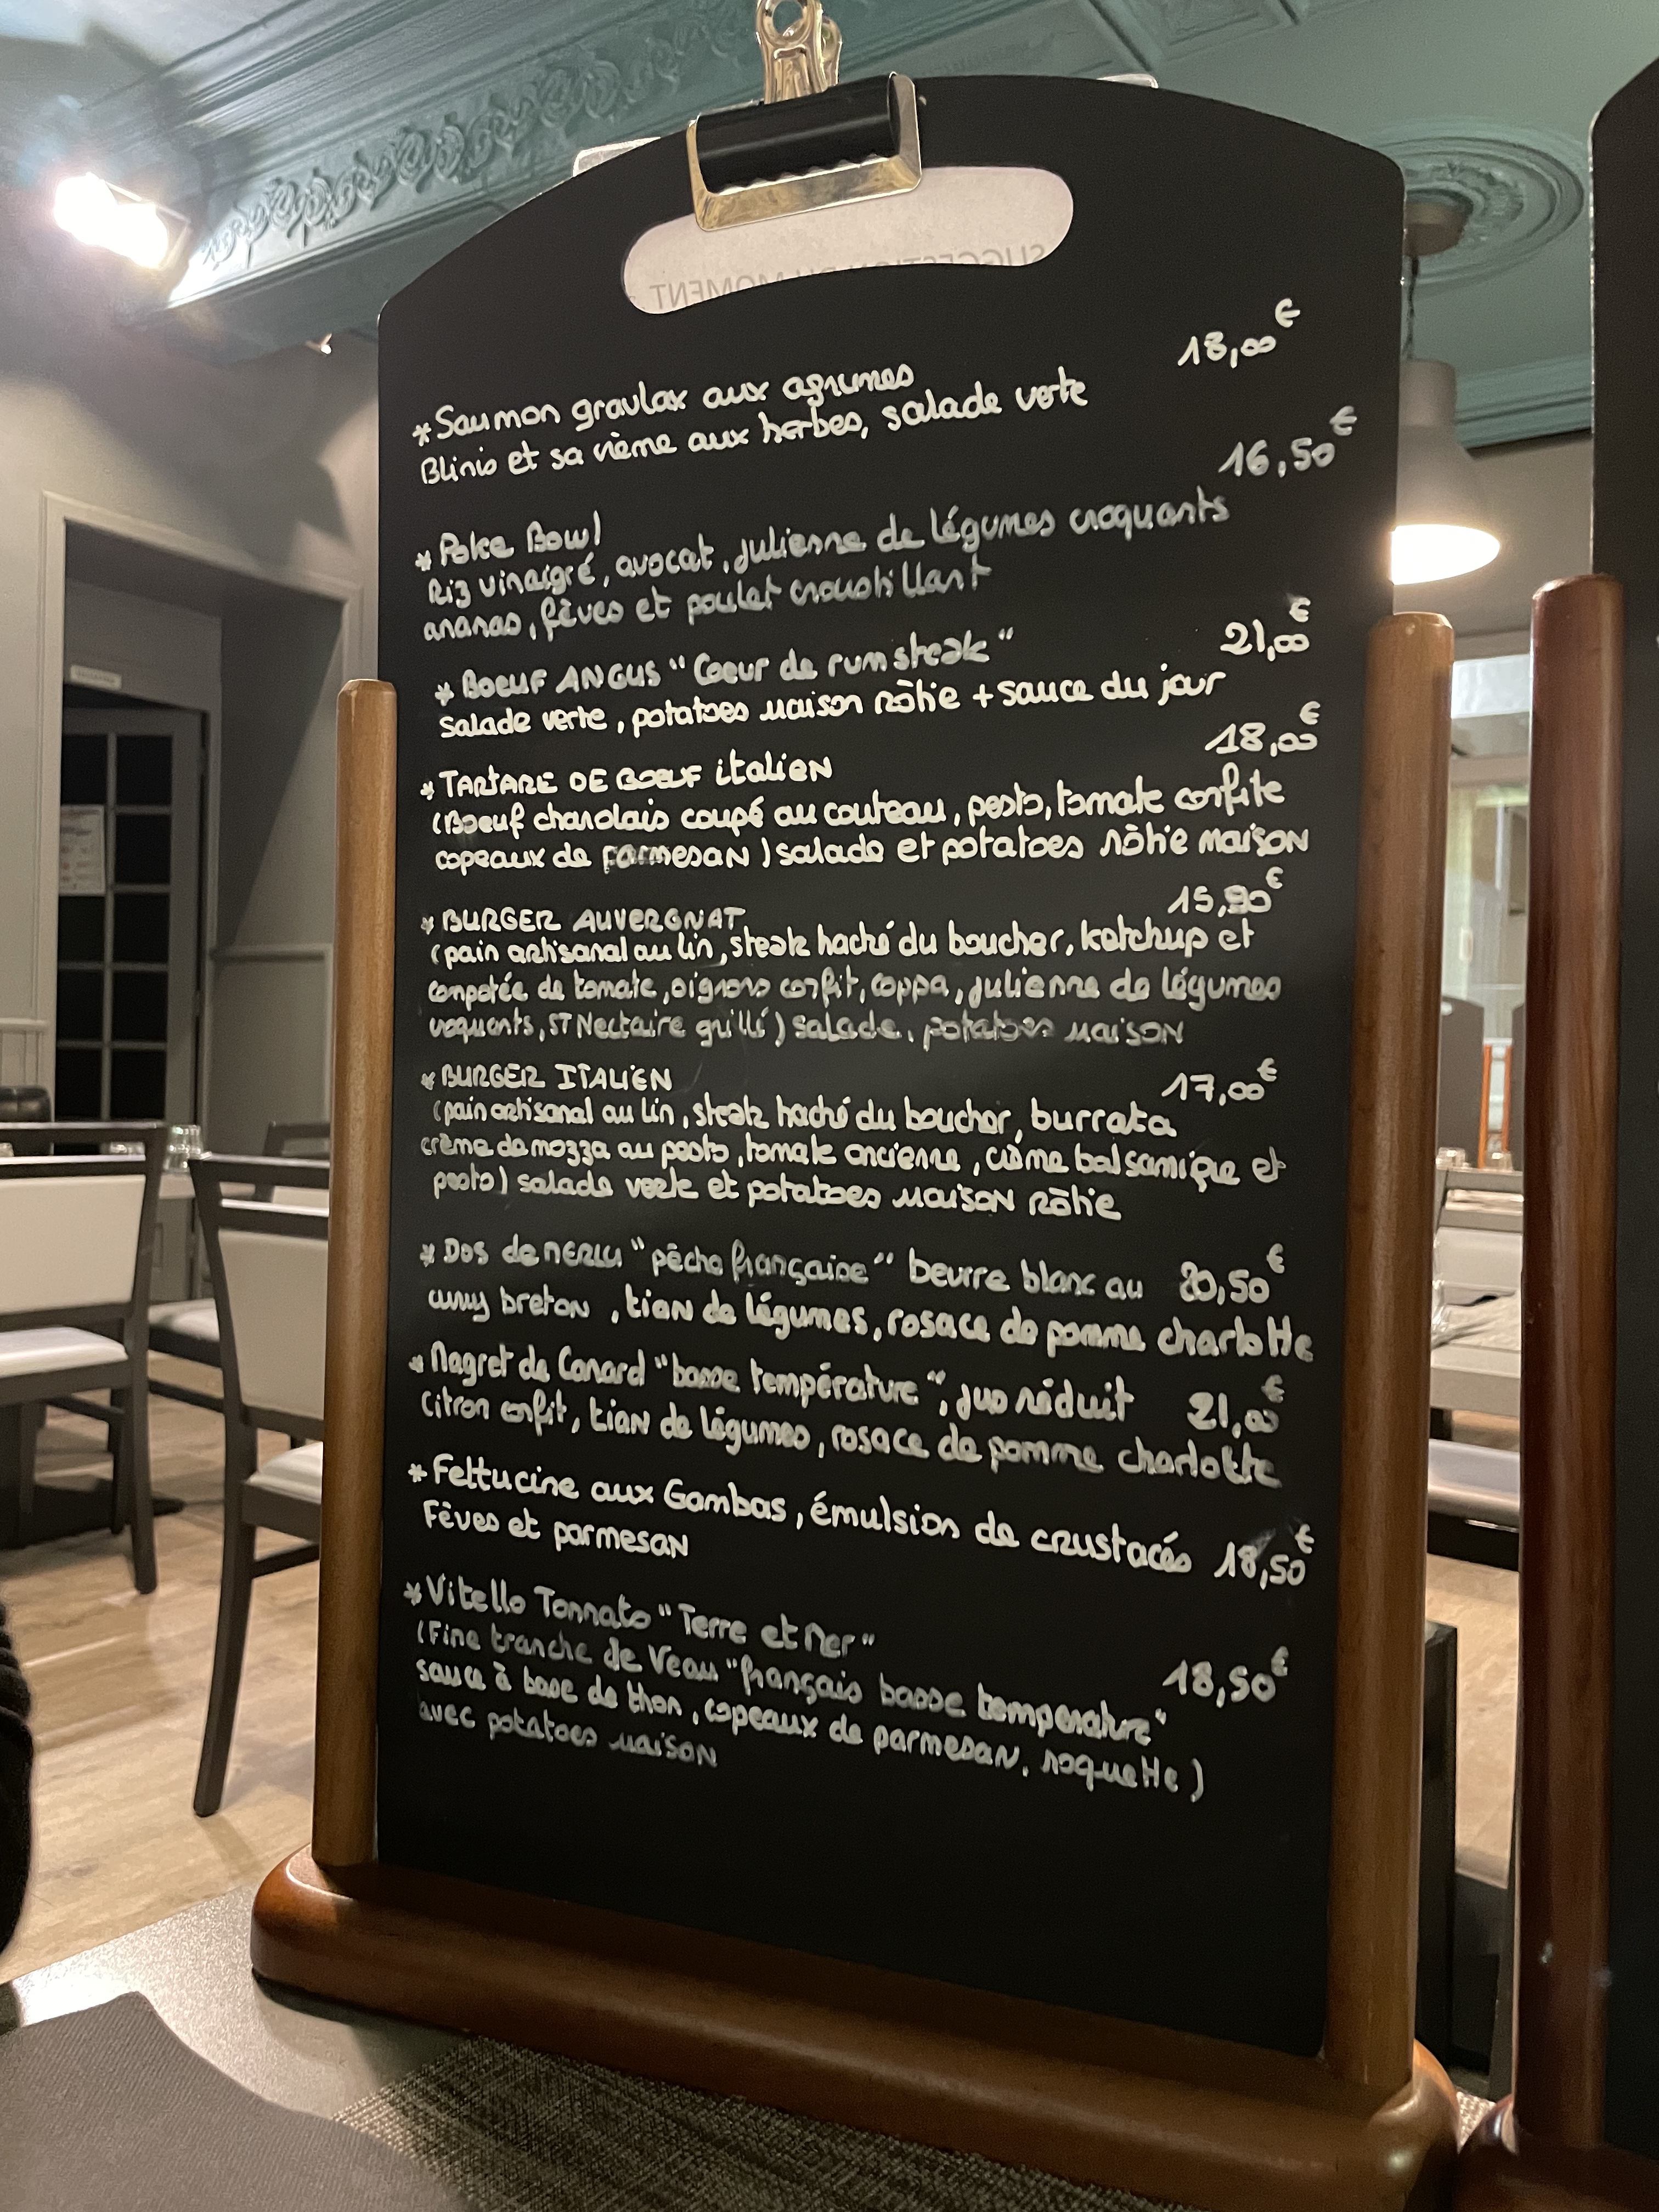 SUGGESTION DU MOMENT
18,00€
*Saumon gravlax aux agrumes
Blinis et sa crème aux herbes, salade verte
16,50€
*Poke Bowl
Riz vinaigré, avocat, julienne de légumes croquants
ananas, fèves et poulet croustillant
21,00€
*BOEUF ANGUS "Coeur de rumsteak"
Salade verte, potatoes maison rôtie + sauce du jour
18,00€
*TARTARE DE BOEUF italien
(Boeuf charolais coupé au couteau, pesto, tomate confite
copeaux de parmesan) salade et potatoes rôtie maison
15,90€
*BURGER AUVERGNAT
(pain artisanal au lin, steak haché du boucher, ketchup et
compotée de tomate, oignons confit, coppa, julienne de légumes
croquants, ST Nectaire grillé) salade, potatoes maison
*BURGER ITALIEN 17,00€
(pain artisanal au lin, steak haché du boucher, burrata
crème de mozza au pesto, tomate ancienne, crème balsamique et
pesto) salade verte et potatoes maison rôtie
*Dos de merlu "pêche française" beurre blanc au 20,50€
curry breton, tian de légumes, rosace de pomme charlotte
*Magret de Canard "basse température", jus réduit 21,00€
Citron confit, tian de légumes, rosace de pomme charlotte
*Fettucine aux Gambas, émulsion de crustacés 18,50€
Fèves et parmesan
*Vitello Tonnato "Terre et Mer"
(Fine tranche de Veau "français basse temperature" 18,50€
sauce à base de thon, copeaux de parmesan, roquette)
avec potatoes maison